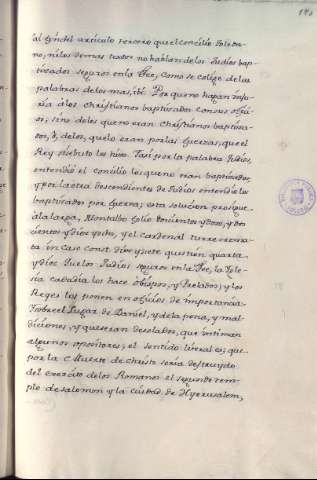 190
al fin del articulo tercero que el concilio Toleda-
no, ni los demas textos no hablan de los Judios bap-
tizados seguros en la Fee, como se colige de las
palabras de los mas, ibi Por que no hagan inju-
ria á los Christianos baptizados con sus ofici-
os; sino de los que no eran Christianos baptiza-
dos, ó, de los, que lo eran por las fuerzas, que el
Rey sisebuto les hizo. Y asi por la palabra Judios,
entendió el concilio los que no eran baptizados,
y por la otra descendientes de Judios entendió los
baptizados por fuerza; esta solucion prosigue
á la larga, Montalbo folio doscientos y doce, y do-
cientos y diez y ocho, y el Cardenal turrecrema-
ta in caso const. diez y siete question quarta
y dize que los Judios seguros en la Fee, la Igle-
sia cadadia los hace obispos, y Prelados; y los
Reyes los ponen en oficios de importancia
sobre el Lugar de Daniel, y de la pena, y mal-
diciones, y que serian desolados, que intiman
algunos opositores, el sentido literal es, que
por la Muerte de christo seria destruydo
del exercito de los Romanos el segundo tem-
plo de salomon y la ciudad de Hyerusalem,